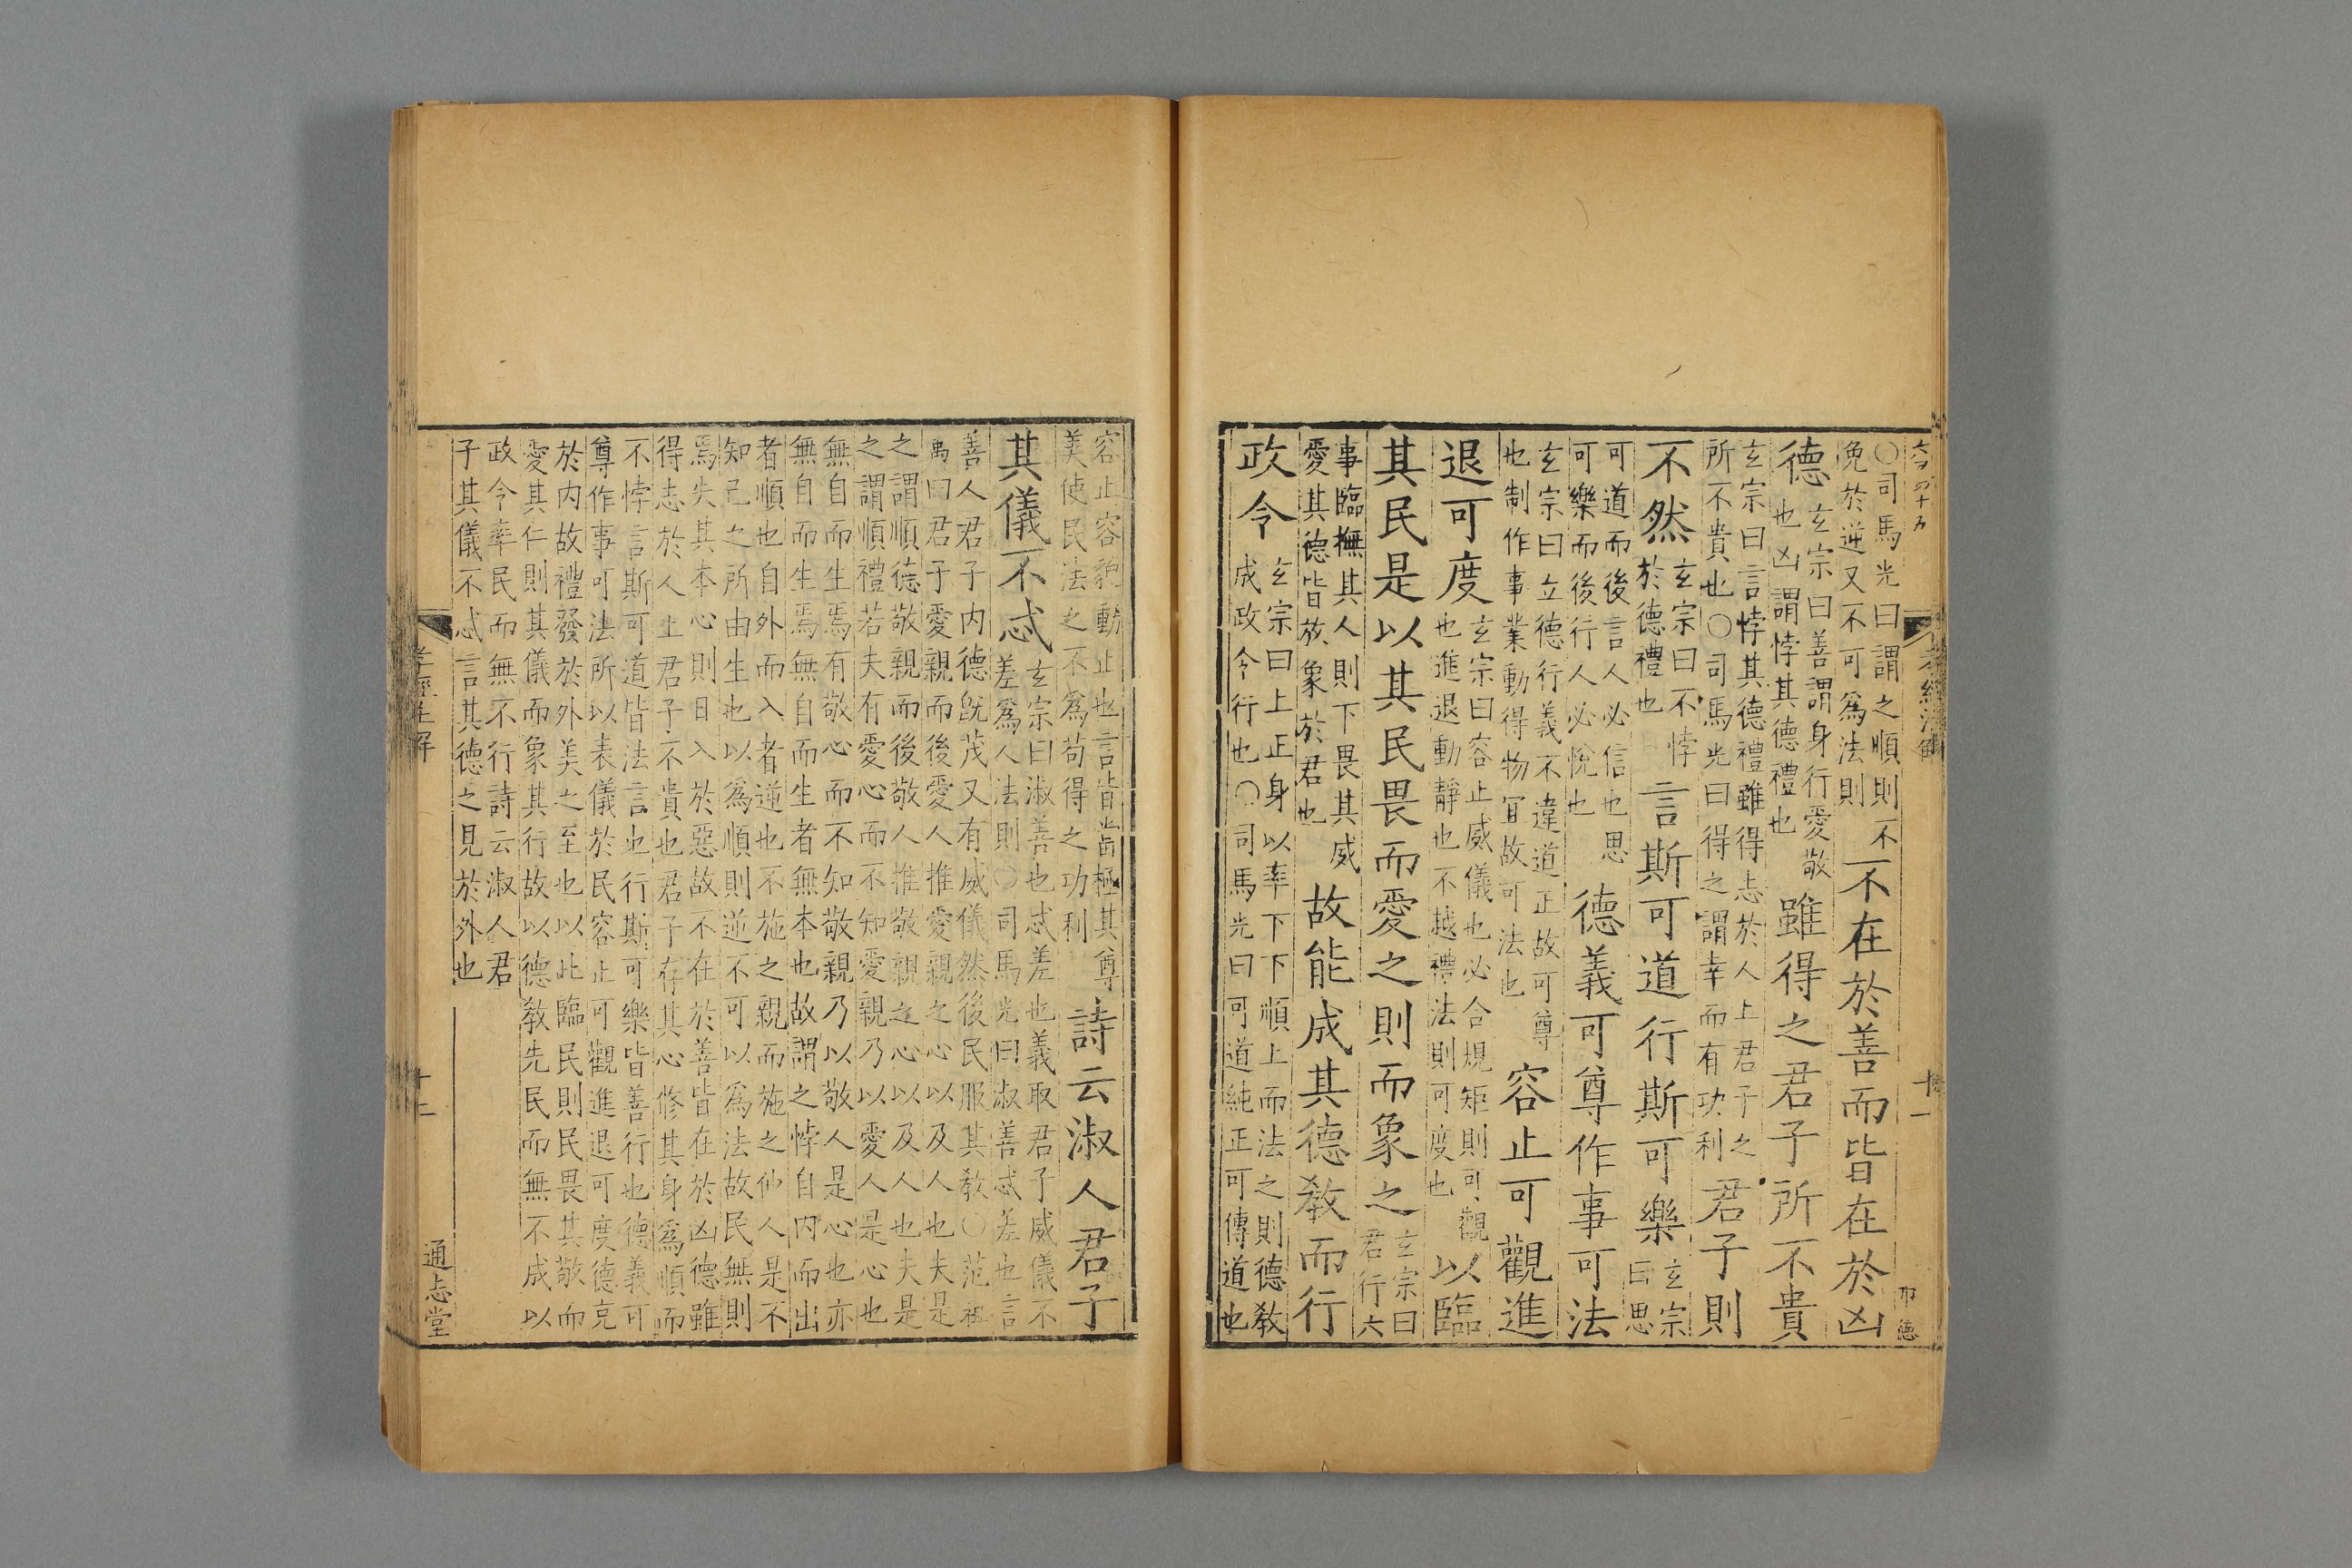 ○司馬光曰謂之順則不
免於逆又不可爲法則
不在於善而皆在於凶
德
玄宗曰善謂身行愛敬
也凶謂悖其德禮也
雖得之君子所不貴
玄宗曰言悖其德禮雖得志於人上君子之
所不貴也○司馬光曰得之謂幸而有功利
君子則
不然
玄宗曰不悖
於德禮也
言斯可道行斯可樂
玄宗
曰思
可道而後言人必信也思
可樂而後行人必悅也
德義可尊作事可法
玄宗曰立德行義不違道正故可尊
也制作事業動得物冝故可法也
容止可觀進
退可度
玄宗曰容止威儀也必合規矩則可觀
也進退動靜也不越禮法則可度也
以臨
其民是以其民畏而愛之則而象之
玄宗曰
君行六
事臨撫其人則下畏其威
愛其德皆放象於君也
故能成其德敎而行
政令
玄宗曰上正身以率下下順上而法之則德敎
成政令行也○司馬光曰可道純正可傳道也
容止容貌動止也言皆當極其尊
美使民法之不爲苟得之功利
詩云淑人君子
其儀不忒
玄宗曰淑善也忒差也義取君子威儀不
差爲人法則○司馬光曰淑善忒差也言
善人君子内德旣茂又有威儀然後民服其敎○范祖
禹曰君子愛親而後愛人推愛親之心以及人也夫是
之謂順德敬親而後敬人推敬親之心以及人也夫是
之謂順禮若夫有愛心而不知愛親乃以愛人是心也
無自而生焉有敬心而不知敬親乃以敬人是心也亦
無自而生焉無自而生者無本也故謂之悖自内而出
者順也自外而入者逆也不施之親而施之他人是不
知己之所由生也以爲順則逆不可以爲法故民無則
焉失其本心則日入於惡故不在於善皆在於凶德雖
得志於人上君子不貴也君子存其心修其身爲順而
不悖言斯可道皆法言也行斯可樂皆善行也德義可
尊作事可法所以表儀於民容止可觀進退可度德充
於内故禮發於外美之至也以此臨民則民畏其敬而
愛其仁則其儀而象其行故以德敎先民而無不成以
政令率民而無不行詩云淑人君
子其儀不忒言其德之見於外也
孝經注解
十二
通志堂